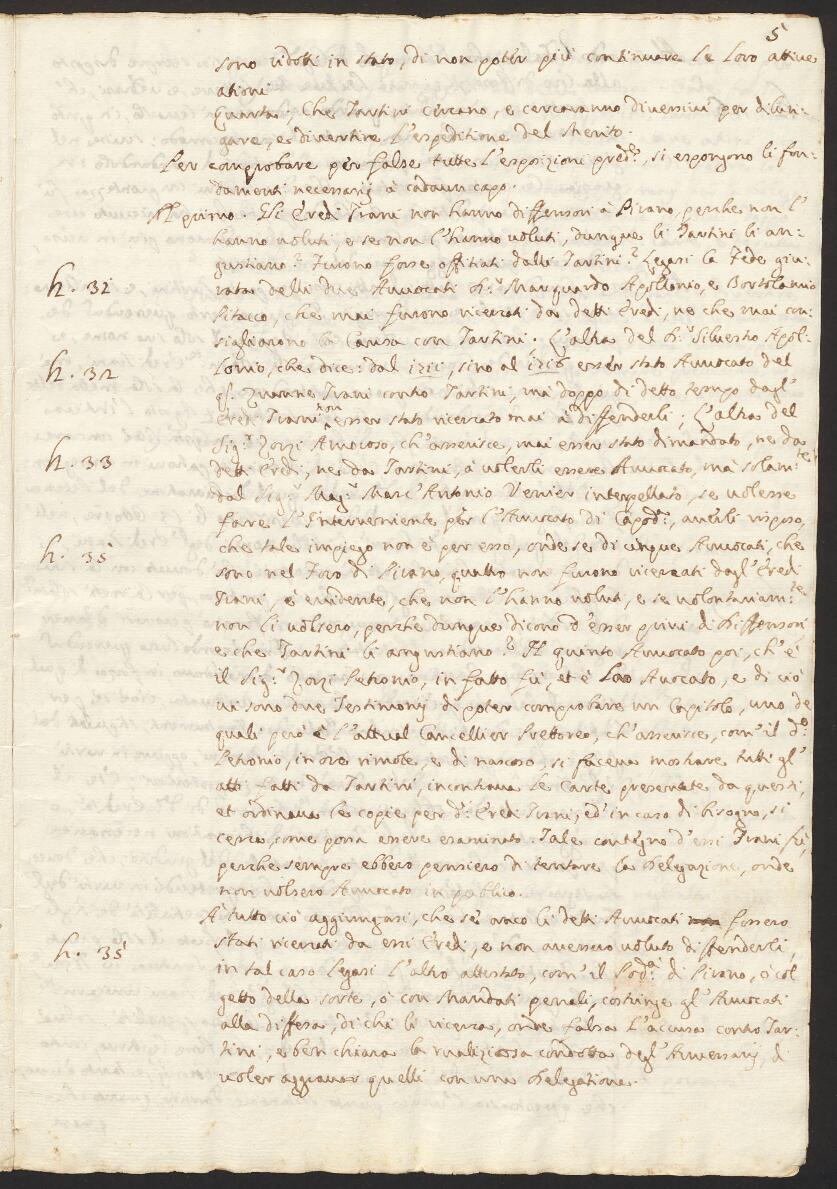 5
sono ridotti in stato, di non poter più continuare le loro attive
ationi
Quarta. Che Tartini cercano, e cercaranno diversivi per dilun-
gare, e divertire l'espeditione del Merito.
Per comprobare per false tutte l'espozizioni pred.e, si espongono li fon-
damenti necessarij à cadaun capo.
Al primo. Gli Eredi Trani non hanno diffensori à Pirano, perche non l'
hanno voluti, e se non l'hanno voluti, dunque li Tartini li an-
gustiano? Furono forse offitiati dalli Tartini? Legasi la Fede giu-
h. 31 rata delli due Avvocati S.r Marquardo Apollonio, e Bortolamio
Pitacco, che mai furono ricercati da detti Eredi, ne che mai con-
sigliarono la Causa con Tartini. L'altra del S.r Silvestro Apol-
h. 32 lonio, che dice: dal 1711, sino al 1716 esser stato Avvocato del
q. Zuanne Trani contro Tartini, mà doppo di detto tempo dagl'
Eredi Trani non esser stato ricercato mai à diffenderli; L'altra del
Sig.r Zorzi Amoroso, ch'asserisce, mai esser stato dimandato, ne da
h. 33 detti Eredi, ne da Tartini, à volerli essere Avvocato, mà solam.te
dal Sig.r Mag.r Marc'Antonio Venier interpellato, se volesse
fare l'Interveniente per l'Avvocato di Capod.a, averli risposo,
h. 35 che tale impiego non è per esso, onde se di cinque Avvocati, che
sono nel Foro di Pirano, quattro non furono ricercati dagl'Eredi
Trani, è evidente, che non l'hanno voluti, e se volontariam.te
non li volsero, perche dunque dicono d'esser privi di Diffensori
e che Tartini li angustiano? Il quinto Avvocato poi, ch'è
il Sig.r Zorzi Petronio, in fatto fù, et è Loro Avocato, e di ciò
vi sono due Testimonij di poter comprobare un Capitolo, uno de
quali però è l'attual Cancellier Prettoreo, ch'asserisce, com'il d.o
Petronio, in ore rimote, e di nascoso, si faceva mostrare tutti gl'
atti fatti da Tartini, incontrava le Carte presentate da questi,
et ordinava le copie per d.i Eredi Trani, ed'in caso di bisogno, si
cerca, come possa essere esaminato. Tale contegno d'essi Trani, fù,
perche sempre ebbero pensiero di tentare la Delegazione, onde
non volsero Avvocato in publico.
A' tutto ciò aggiungasi, che se anco li detti Avvocati fossero
h. 35 stati ricercati da essi Eredi, e non avessero voluto diffenderli,
in tal caso legasi l'altro attestato, com'il Pod.à di Pirano, ò col
getto della sorte, ò con Mandati penali, costringe gl'Avvocati
alla diffesa, di chi li ricerca, onde falsa l'accusa contro Tar-
tini, e ben chiara la maliziosa condotta degl'Aversarij, di
voler aggravar quelli con una Delegatione.